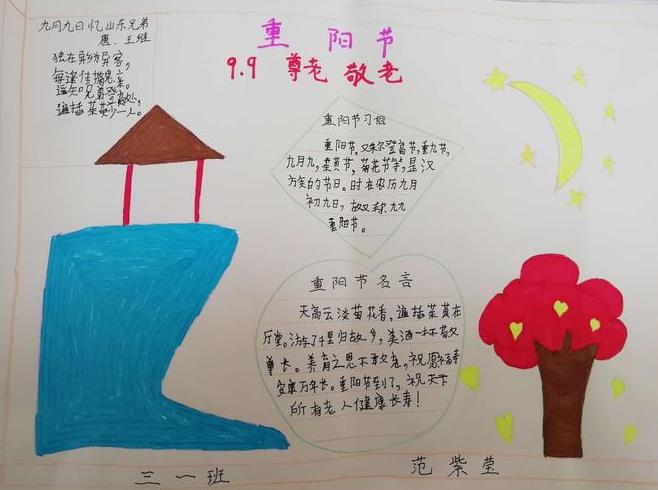 重阳节
9.9 尊老 敬老
九月九日忆山东兄弟
唐、王维
独在异乡异客,
每逢佳
遥知兄弟登高处,
遍插茱萸少一人。
重阳节习俗
重阳节,又称登高节,重九节,
九月九,茱萸节,菊花节等,是汉
方矣的节日。时在农历九月
初九日,故又称九九
重阳节。
重阳节名言
天高云淡菊花香,遍插茱萸在
厅堂。游行千里归故乡,美酒一杯敬
尊长。养育之恩不敢忘,祝愿福寿
安康万年长。重阳节到了,祝天下
所有老人健康长寿!
三一班
范紫莹